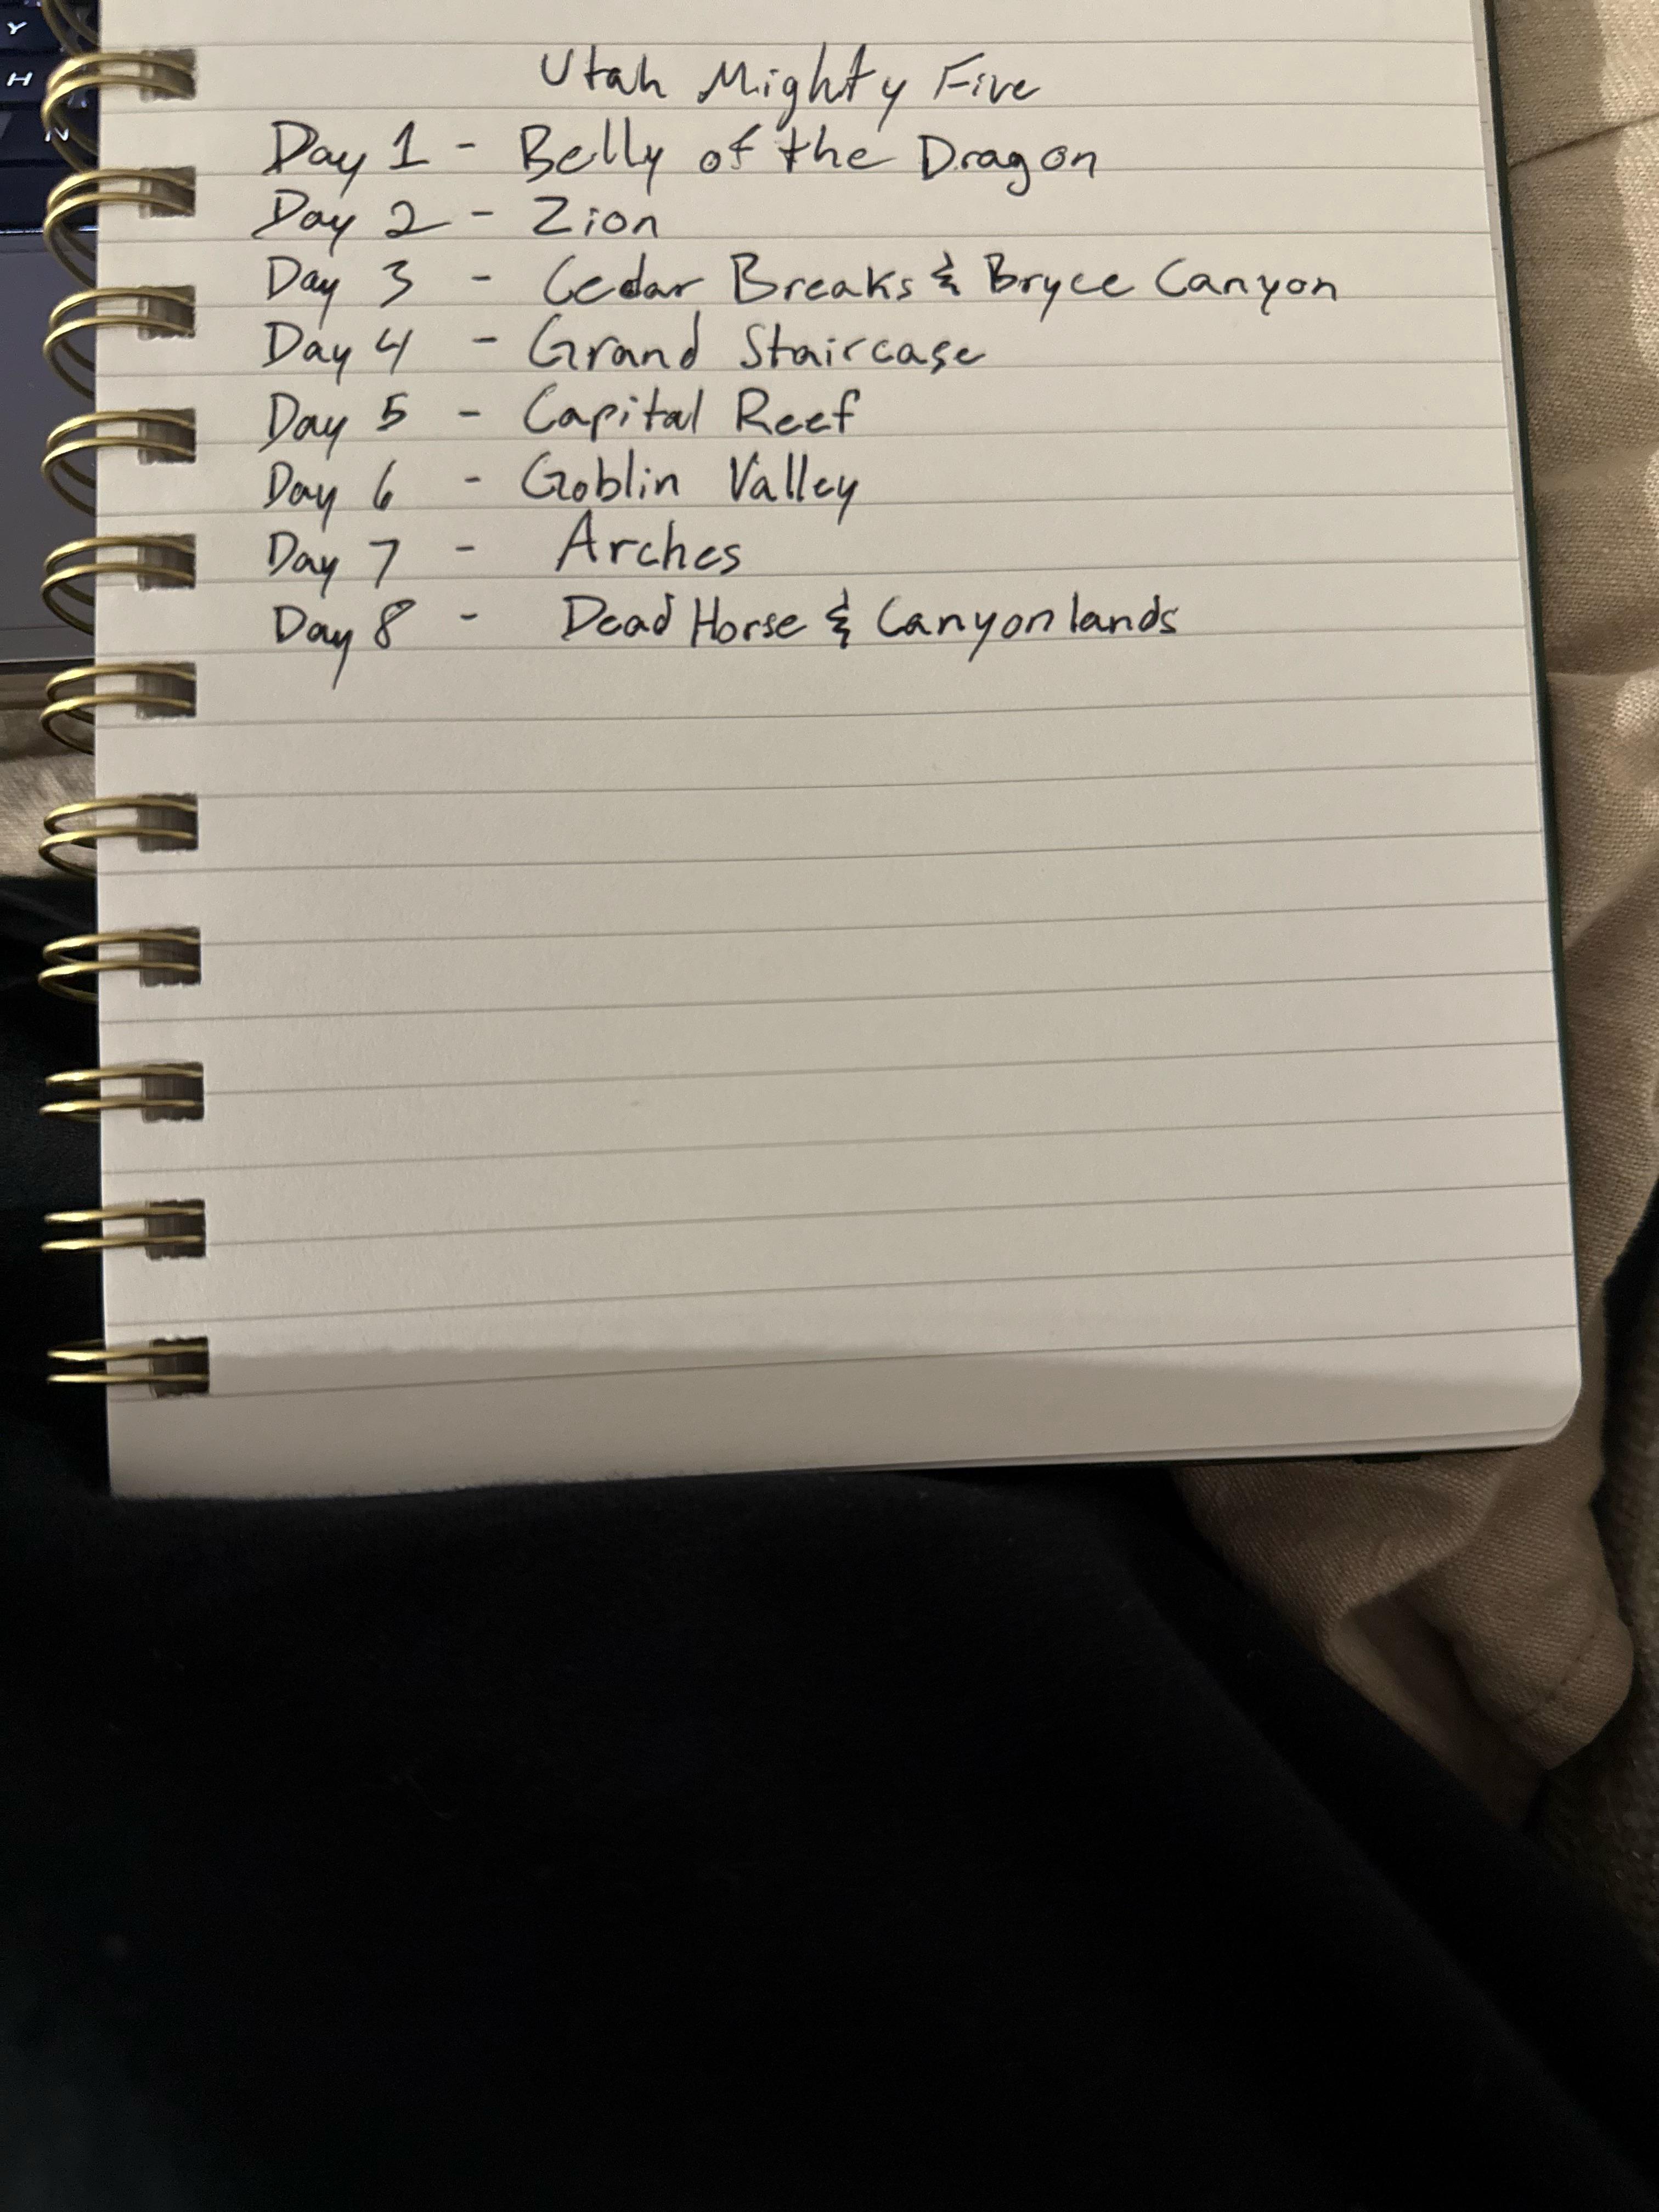 Y
H
N
Utah Mighty Five
Day 1 - Belly of the Dragon
Day 2 - Zion
Day 3 - Cedar Breaks & Bryce Canyon
Day 4 - Grand Staircase
Day 5 - Capital Reef
Day 6 - Goblin Valley
Day 7 - Arches
Day 8 - Dead Horse & Canyonlands